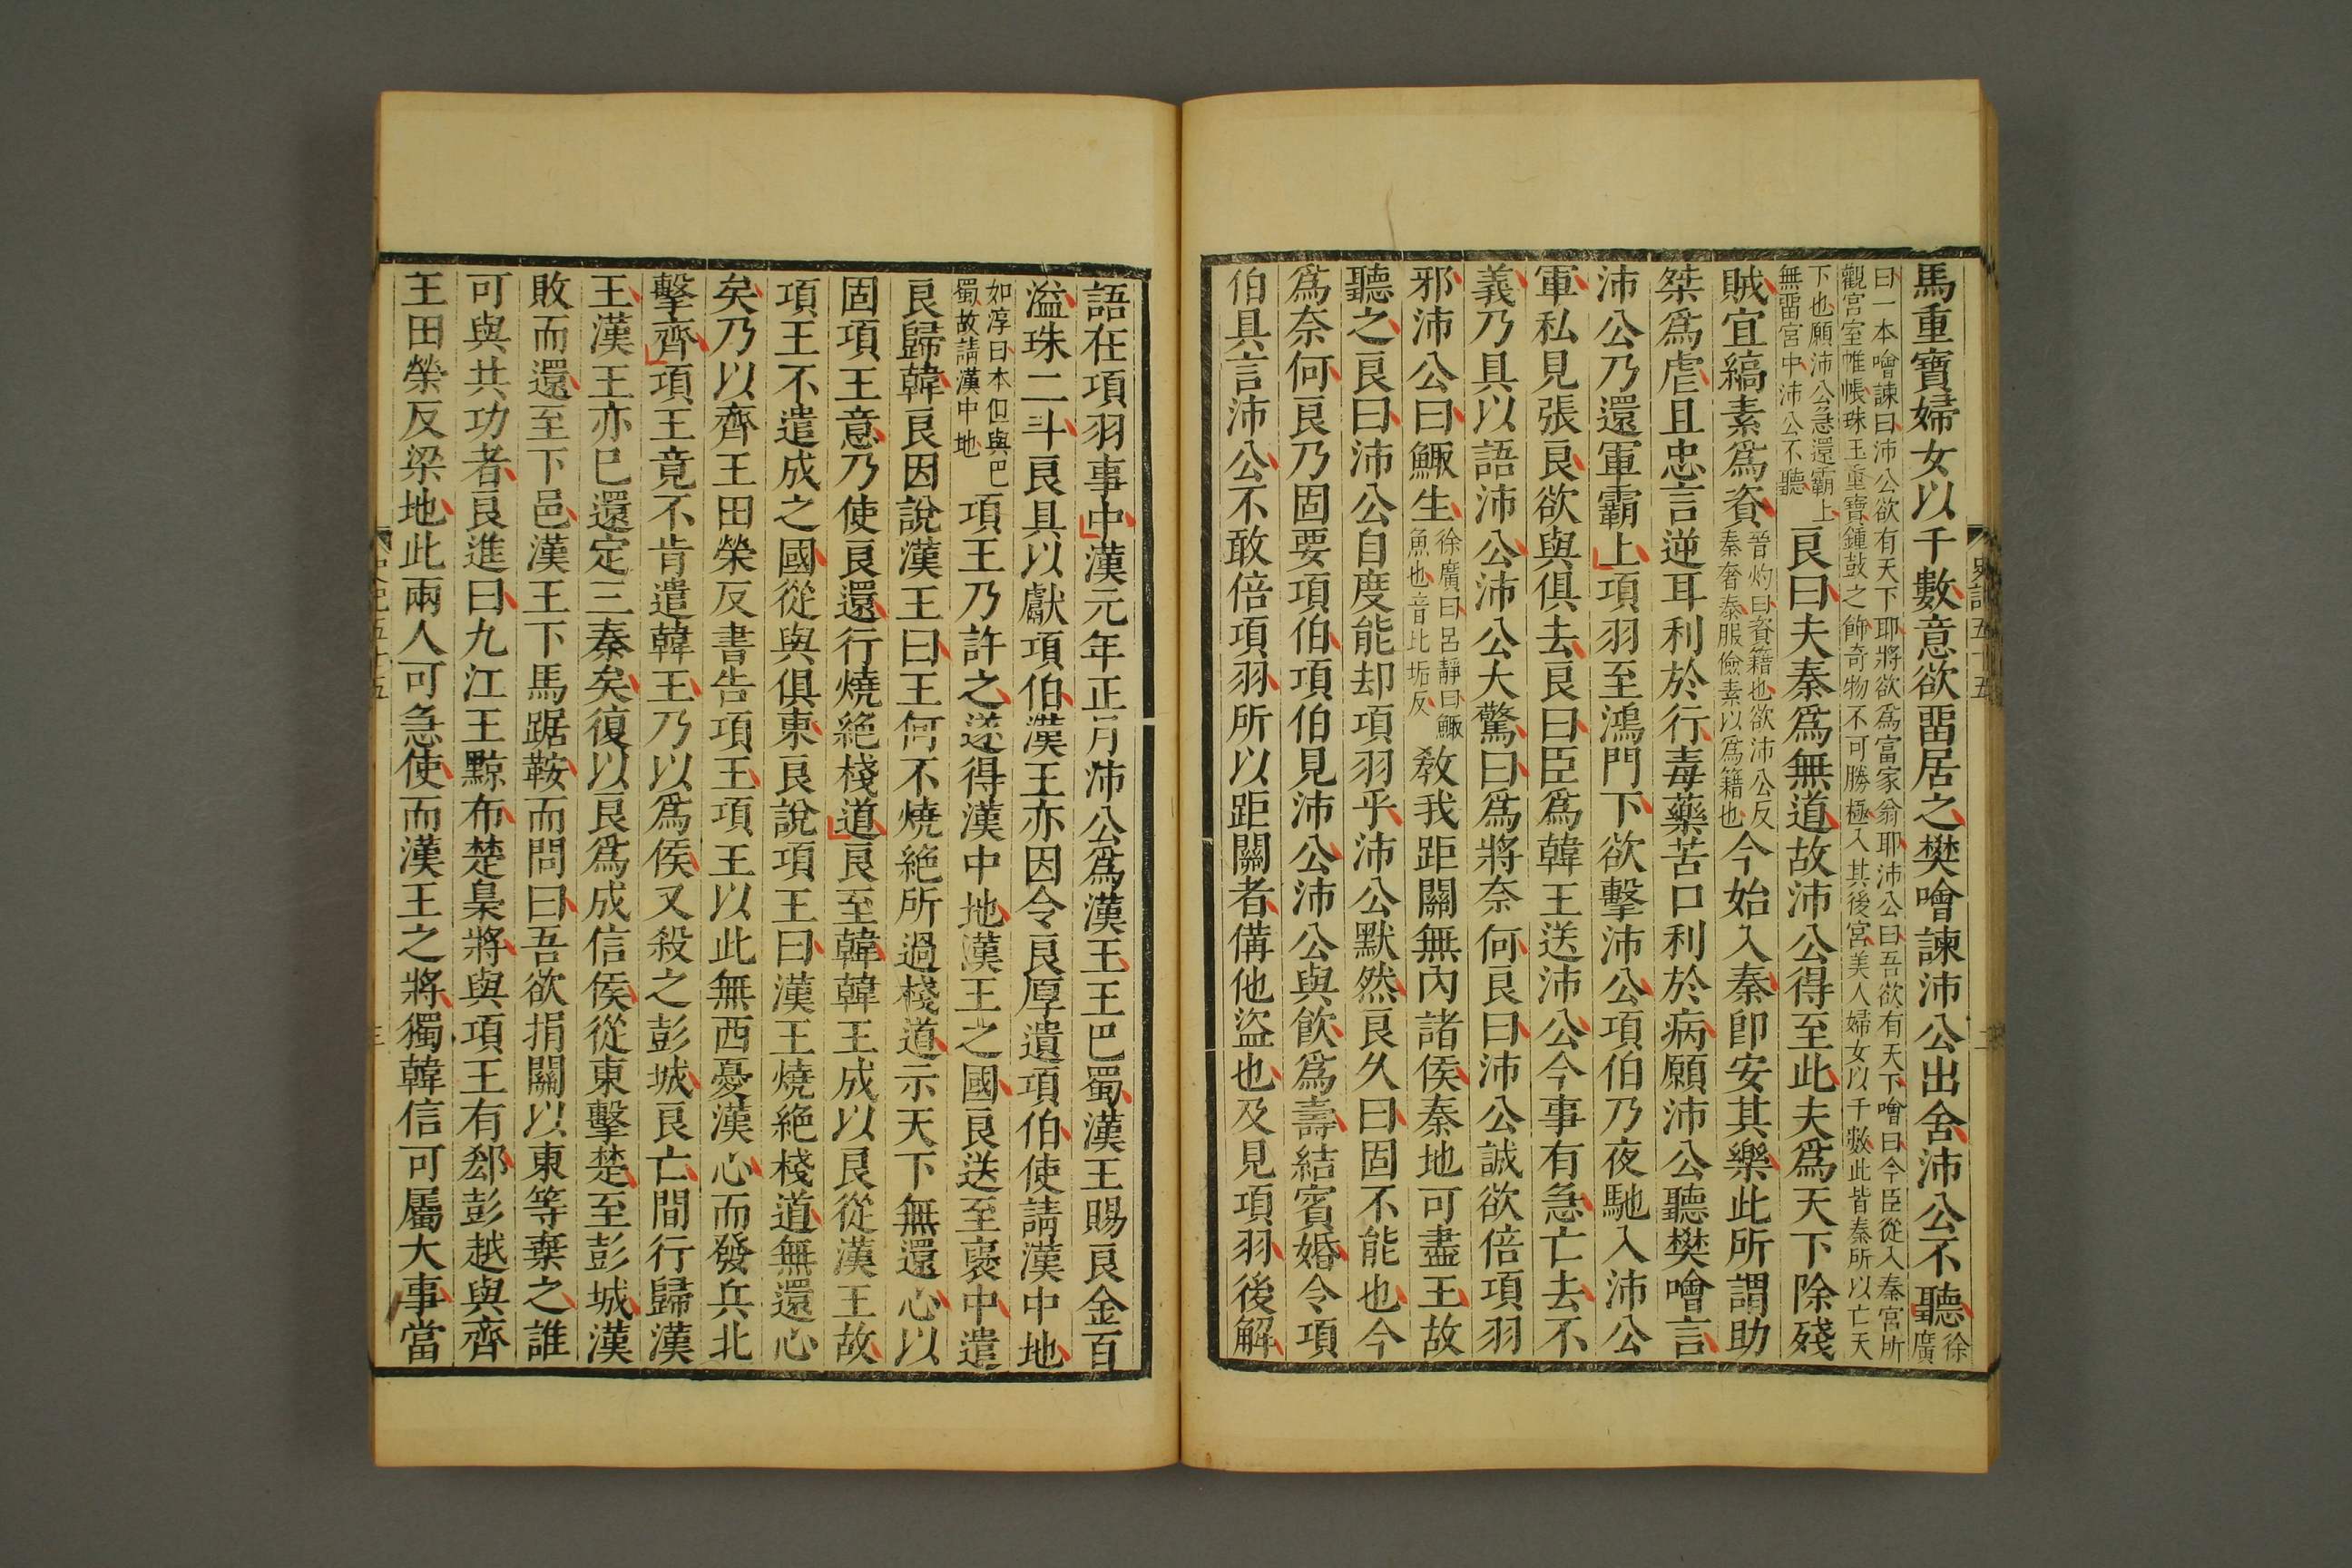 馬重寶婦女以千數意欲畱居之樊噲諫沛公出舍沛公不聽徐
廣
曰一本噲諫曰沛公欲有天下耶將欲爲富家翁耶沛公曰吾欲有天下噲曰今臣從入秦宮所
觀宮室帷帳珠玉重寶鍾鼓之飾奇物不可勝極入其後宮美人婦女以千數此皆秦所以亡天
下也願沛公急還霸上
無畱宮中沛公不聽
良曰夫秦爲無道故沛公得至此夫爲天下除殘
賊宜縞素爲資
晉灼曰資籍也欲沛公反
秦奢泰服儉素以爲籍也
今始入秦卽安其樂此所謂助
桀爲虐且忠言逆耳利於行毒藥苦口利於病願沛公聽樊噲言
沛公乃還軍霸上項羽至鴻門下欲擊沛公項伯乃夜馳入沛公
軍私見張良欲與俱去良曰臣爲韓王送沛公今事有急亡去不
義乃具以語沛公沛公大驚曰爲將奈何良曰沛公誠欲倍項羽
邪沛公曰鯫生
徐廣曰呂靜曰鯫
魚也音此垢反
教我距關無內諸侯秦地可盡王故
聽之良曰沛公自度能却項羽乎沛公默然良久曰固不能也今
爲奈何良乃固要項伯項伯見沛公沛公與飲爲壽結賓婚令項
伯具言沛公不敢倍項羽所以距關者備他盜也及見項羽後解
史記五十五
二
語在項羽事中漢元年正月沛公爲漢王王巴蜀漢王賜良金百
溢珠二斗良具以獻項伯漢王亦因令良厚遺項伯使請漢中地
如淳曰本但與巴
蜀故請漢中地
項王乃許之遂得漢中地漢王之國良送至襃中遣
良歸韓良因說漢王曰王何不燒絶所過棧道示天下無還心以
固項王意乃使良還行燒絶棧道良至韓韓王成以良從漢王故
項王不遣成之國從與俱東良說項王曰漢王燒絶棧道無還心
矣乃以齊王田榮反書告項王項王以此無西憂漢心而發兵北
擊齊項王竟不肯遣韓王乃以爲侯又殺之彭城良亡間行歸漢
王漢王亦已還定三秦矣復以良爲成信侯從東擊楚至彭城漢
敗而還至下邑漢王下馬踞鞍而問曰吾欲捐關以東等棄之誰
可與共功者良進曰九江王黥布楚梟將與項王有郄彭越與齊
王田榮反梁地此兩人可急使而漢王之將獨韓信可屬大事當
史記五十五
三